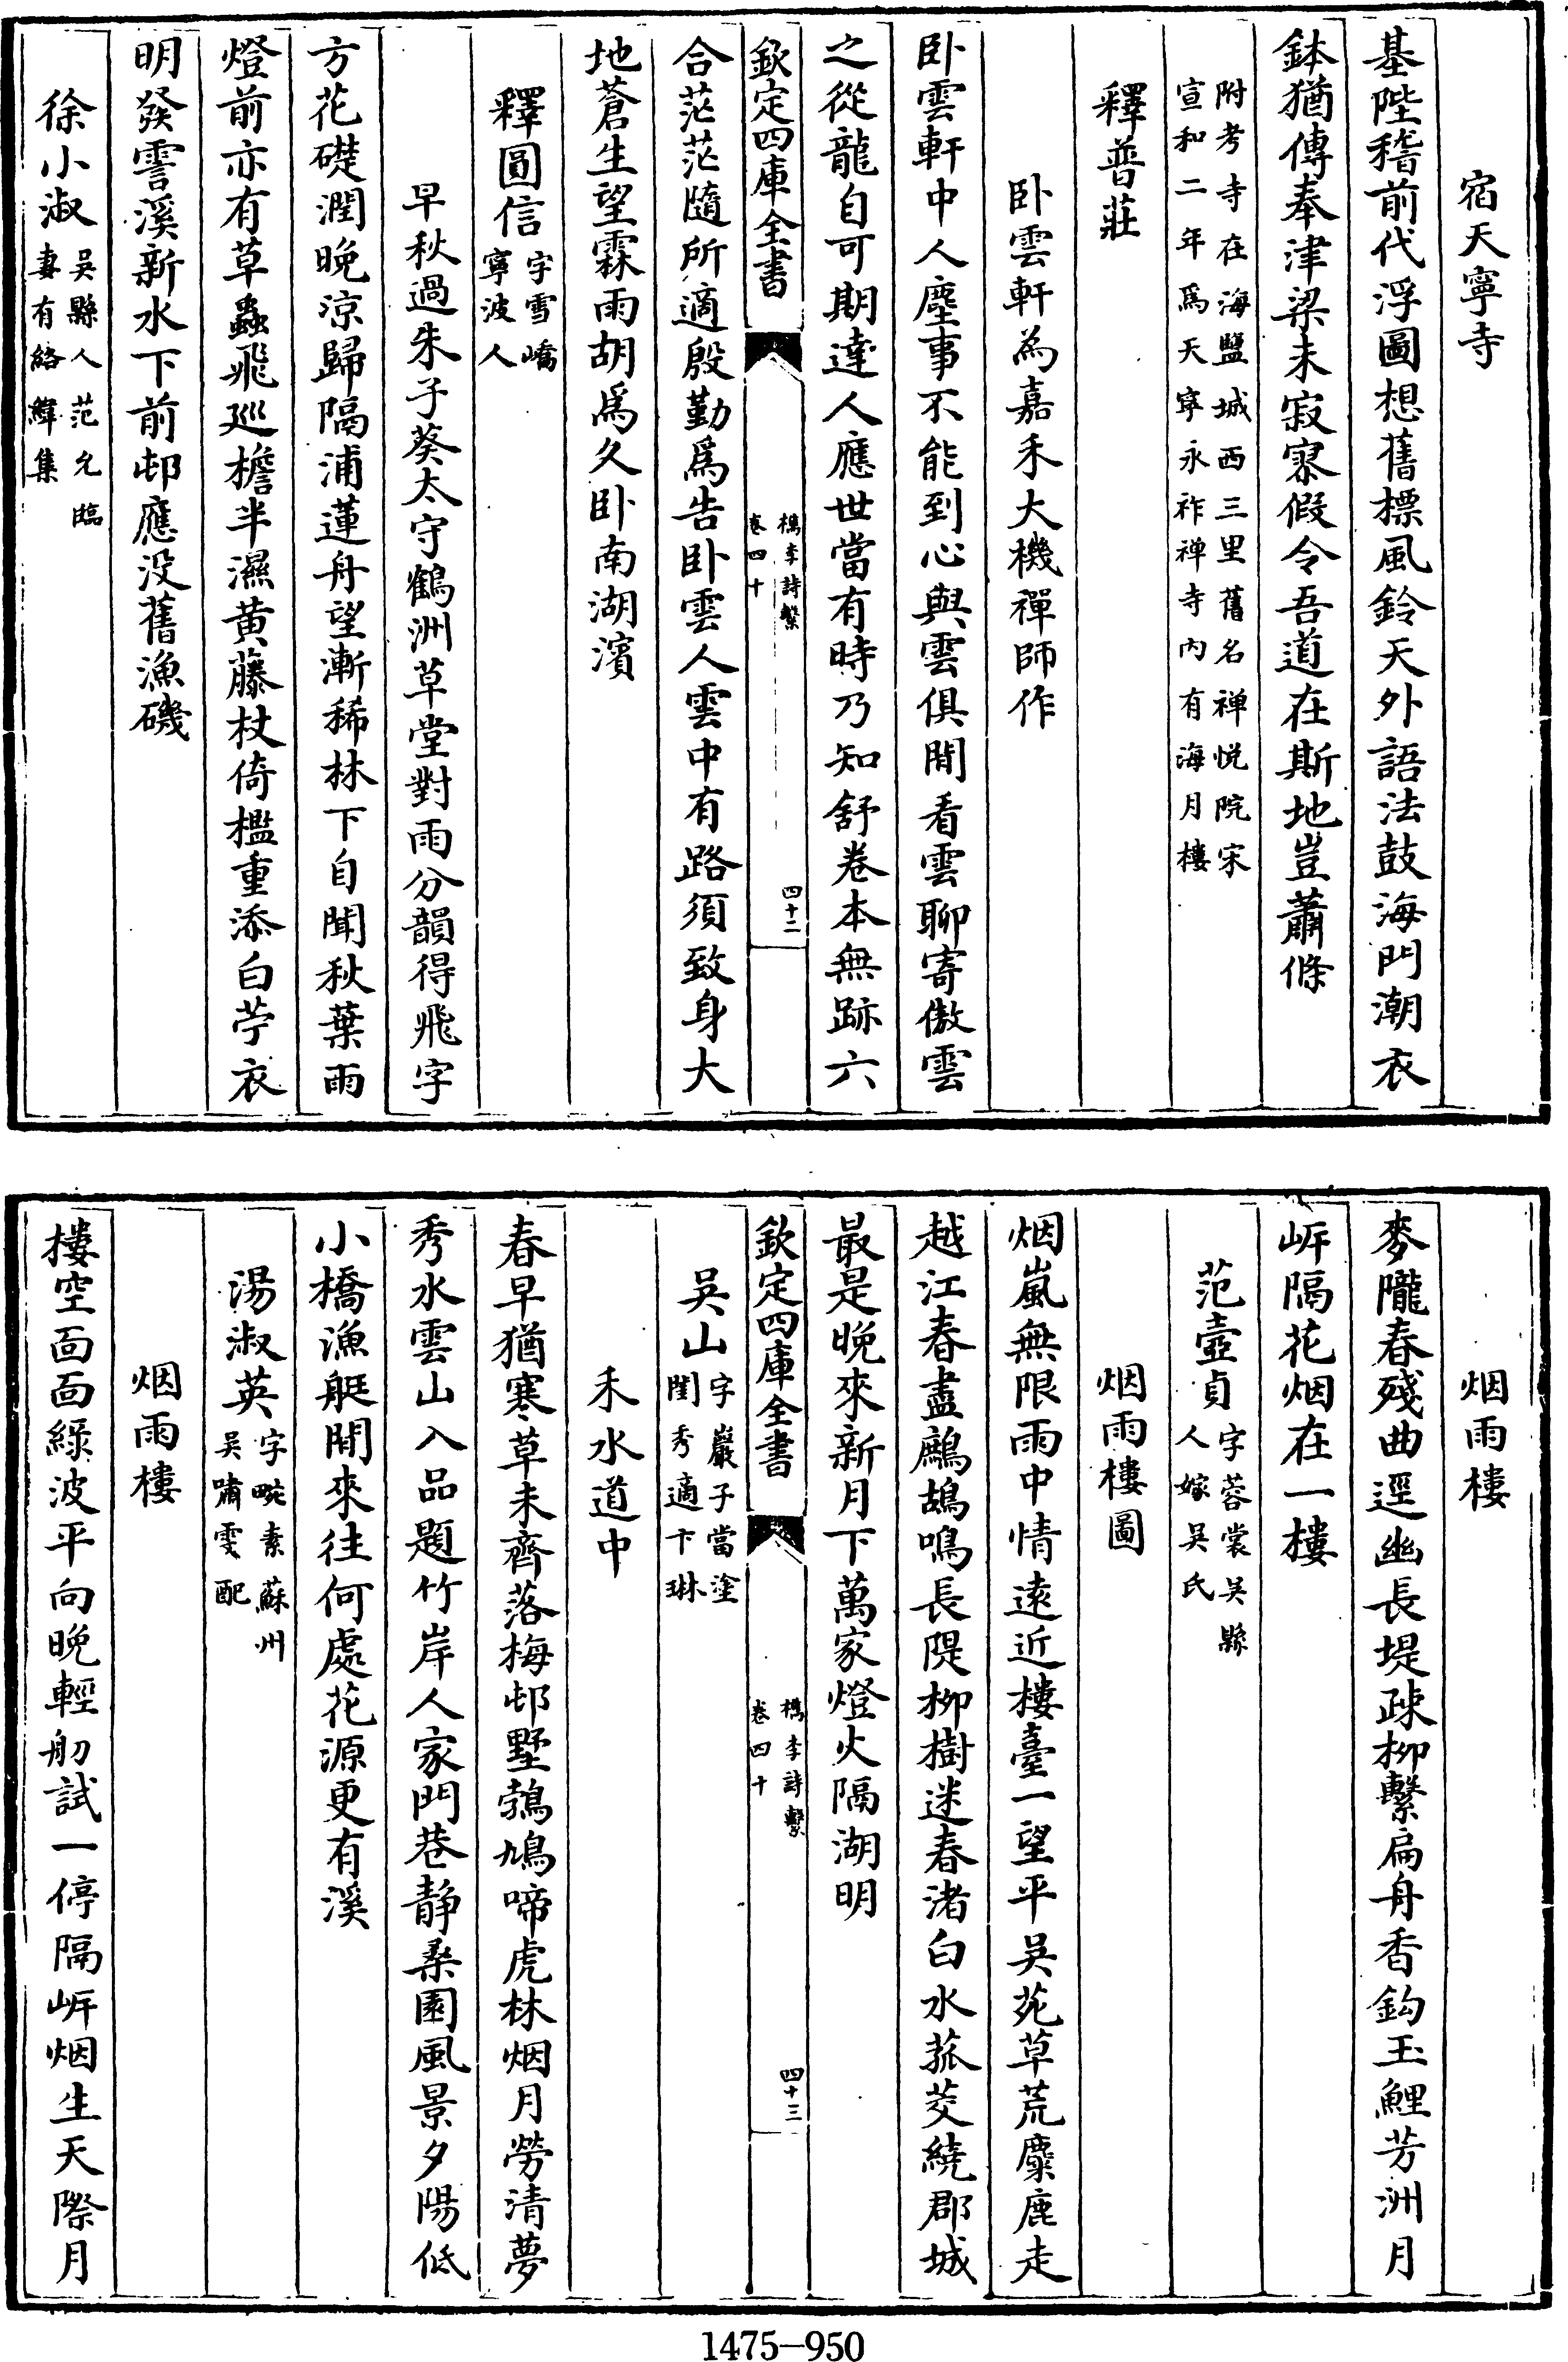 宿天寧寺
基陛稽前代浮圖想舊標風鈴天外語法鼓海門潮衣
鉢猶傳奉津梁未寂寥假令吾道在斯地豈蕭條
附考寺在海鹽城西三里舊名禅悦院宋
宣和二年爲天寧永祚禅寺内有海月樓
釋普莊
卧雲軒為嘉禾大機禪師作
卧雲軒中人塵事不能到心與雲俱閒看雲聊寄傲雲
之從龍自可期達人應世當有時乃知舒卷本無跡六
欽定四庫全書
檇李詩繫
卷四十
四十二
合茫茫隨所適殷勤爲告卧雲人雲中有路須致身大
地蒼生望霖雨胡爲久卧南湖濱
釋圓信
字雪嶠
寧波人
早秋過朱子葵太守鶴洲草堂對雨分韻得飛字
方花礎潤晚涼歸隔浦蓮舟望漸稀林下自聞秋葉雨
燈前亦有草蟲飛巡檐半濕黄藤杖倚檻重添白苧衣
明發霅溪新水下前邨應没舊漁磯
徐小淑
吳縣人范允臨
妻有絡緯集
烟雨樓
麥隴春殘曲逕幽長堤疎柳繫扁舟香鈎玉鯉芳洲月
㟁隔花烟在一樓
范壺貞
字蓉裳吳縣
人嫁吳氏
烟雨樓圖
烟嵐無限雨中情遠近樓臺一望平吳苑草荒麋鹿走
越江春盡鷓鴣鳴長隄柳樹迷春渚白水菰茭繞郡城
最是晚來新月下萬家燈火隔湖明
欽定四庫全書
檇李詩繫
卷四十
四十三
吳山
字巖子當塗
閨秀適卞琳
禾水道中
春早猶寒草未齊落梅邨墅鵓鳩啼虎林烟月勞清夢
秀水雲山入品題竹岸人家門巷静桑園風景夕陽低
小橋漁艇閒來往何處花源更有溪
湯淑英
字畹素蘇州
吳嘯雯配
烟雨樓
樓空面面綠波平向晚輕舠試一停隔㟁烟生天際月
1475-950